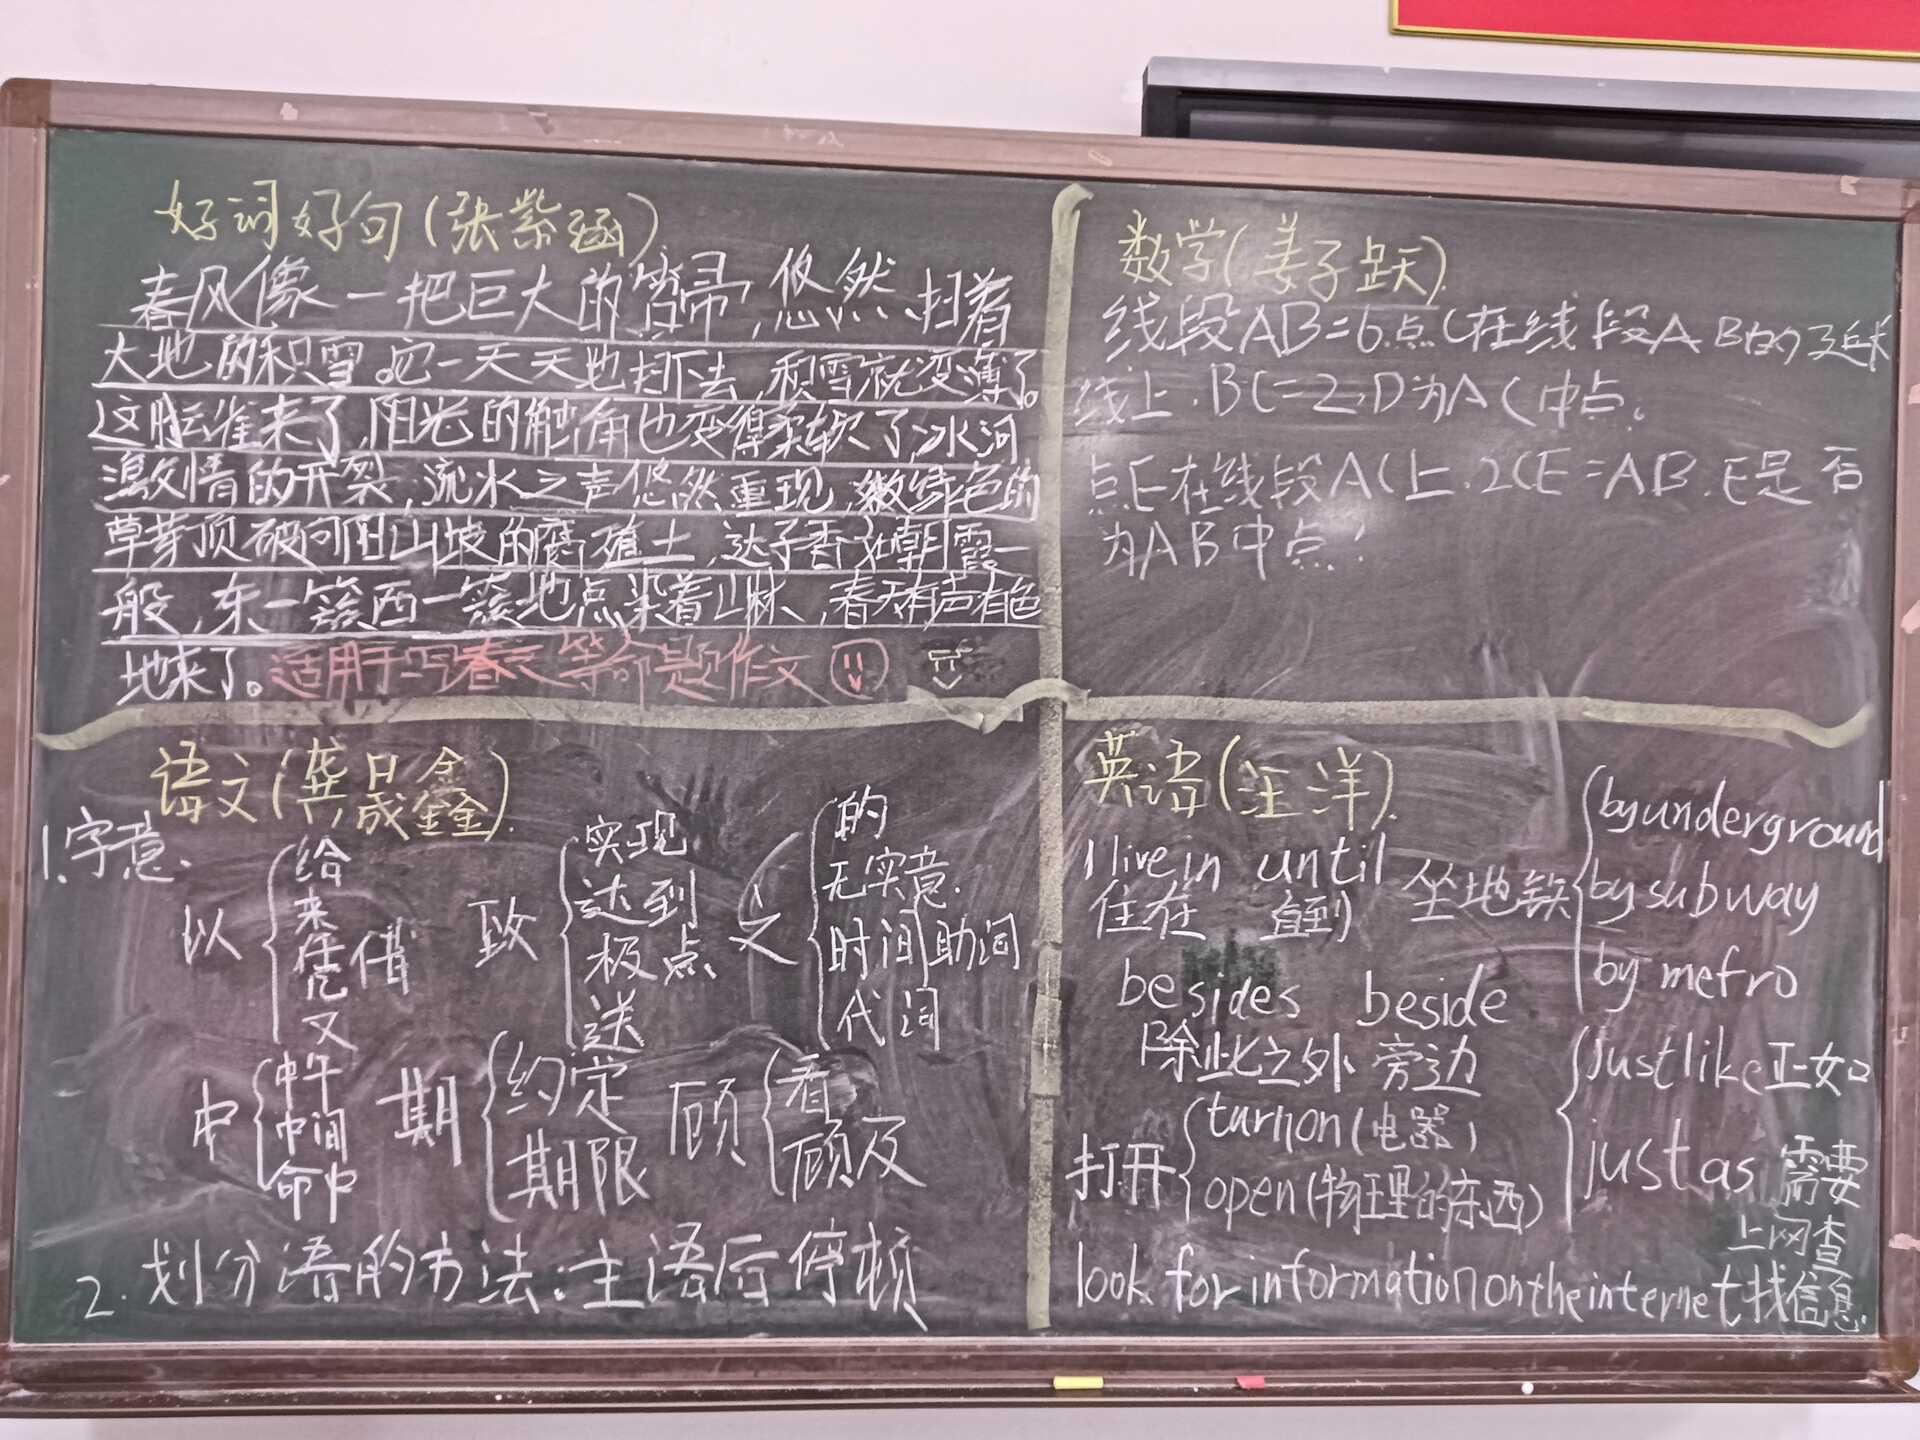 好词好句(张紫涵)
春风像一把巨大的笤帚,悠然、扫着
大地的积雪。它一天天地扫下去,积雪就变薄了。
这时云雀来了,阳光的触角也变得柔软了,冰河
激情的开裂,流水之声悠然重现,嫩绿色的
草芽顶破向阳山坡的腐殖土,达子香如朝霞一
般,东一簇西一簇地点染着山林,春天有声有色
地来了。适用于写春天等命题作文
数学(姜子跃).
线段AB=6.点C在线段AB的延长
线上.BC=2,D为AC中点.
点E在线段AC上.2CE=AB.E是否
为AB中点?
语文(龚晟鑫).
1.字意.
以 给 来 凭借 又
致 实现 达到 极点 送
之 的 无实意. 时间助词 代词
中 中午 中间 命中
期 约定 期限
顾 看 顾及
2.划分语的方法:主语后停顿
英语(汪洋).
live in until
住在 直到
坐地铁 by underground
by subway
by metro
besides beside
除此之外 旁边
just like 正如
打开 turn on(电器)
open(物理的东西)
just as 需要
上网查
look for information on the internet 找信息